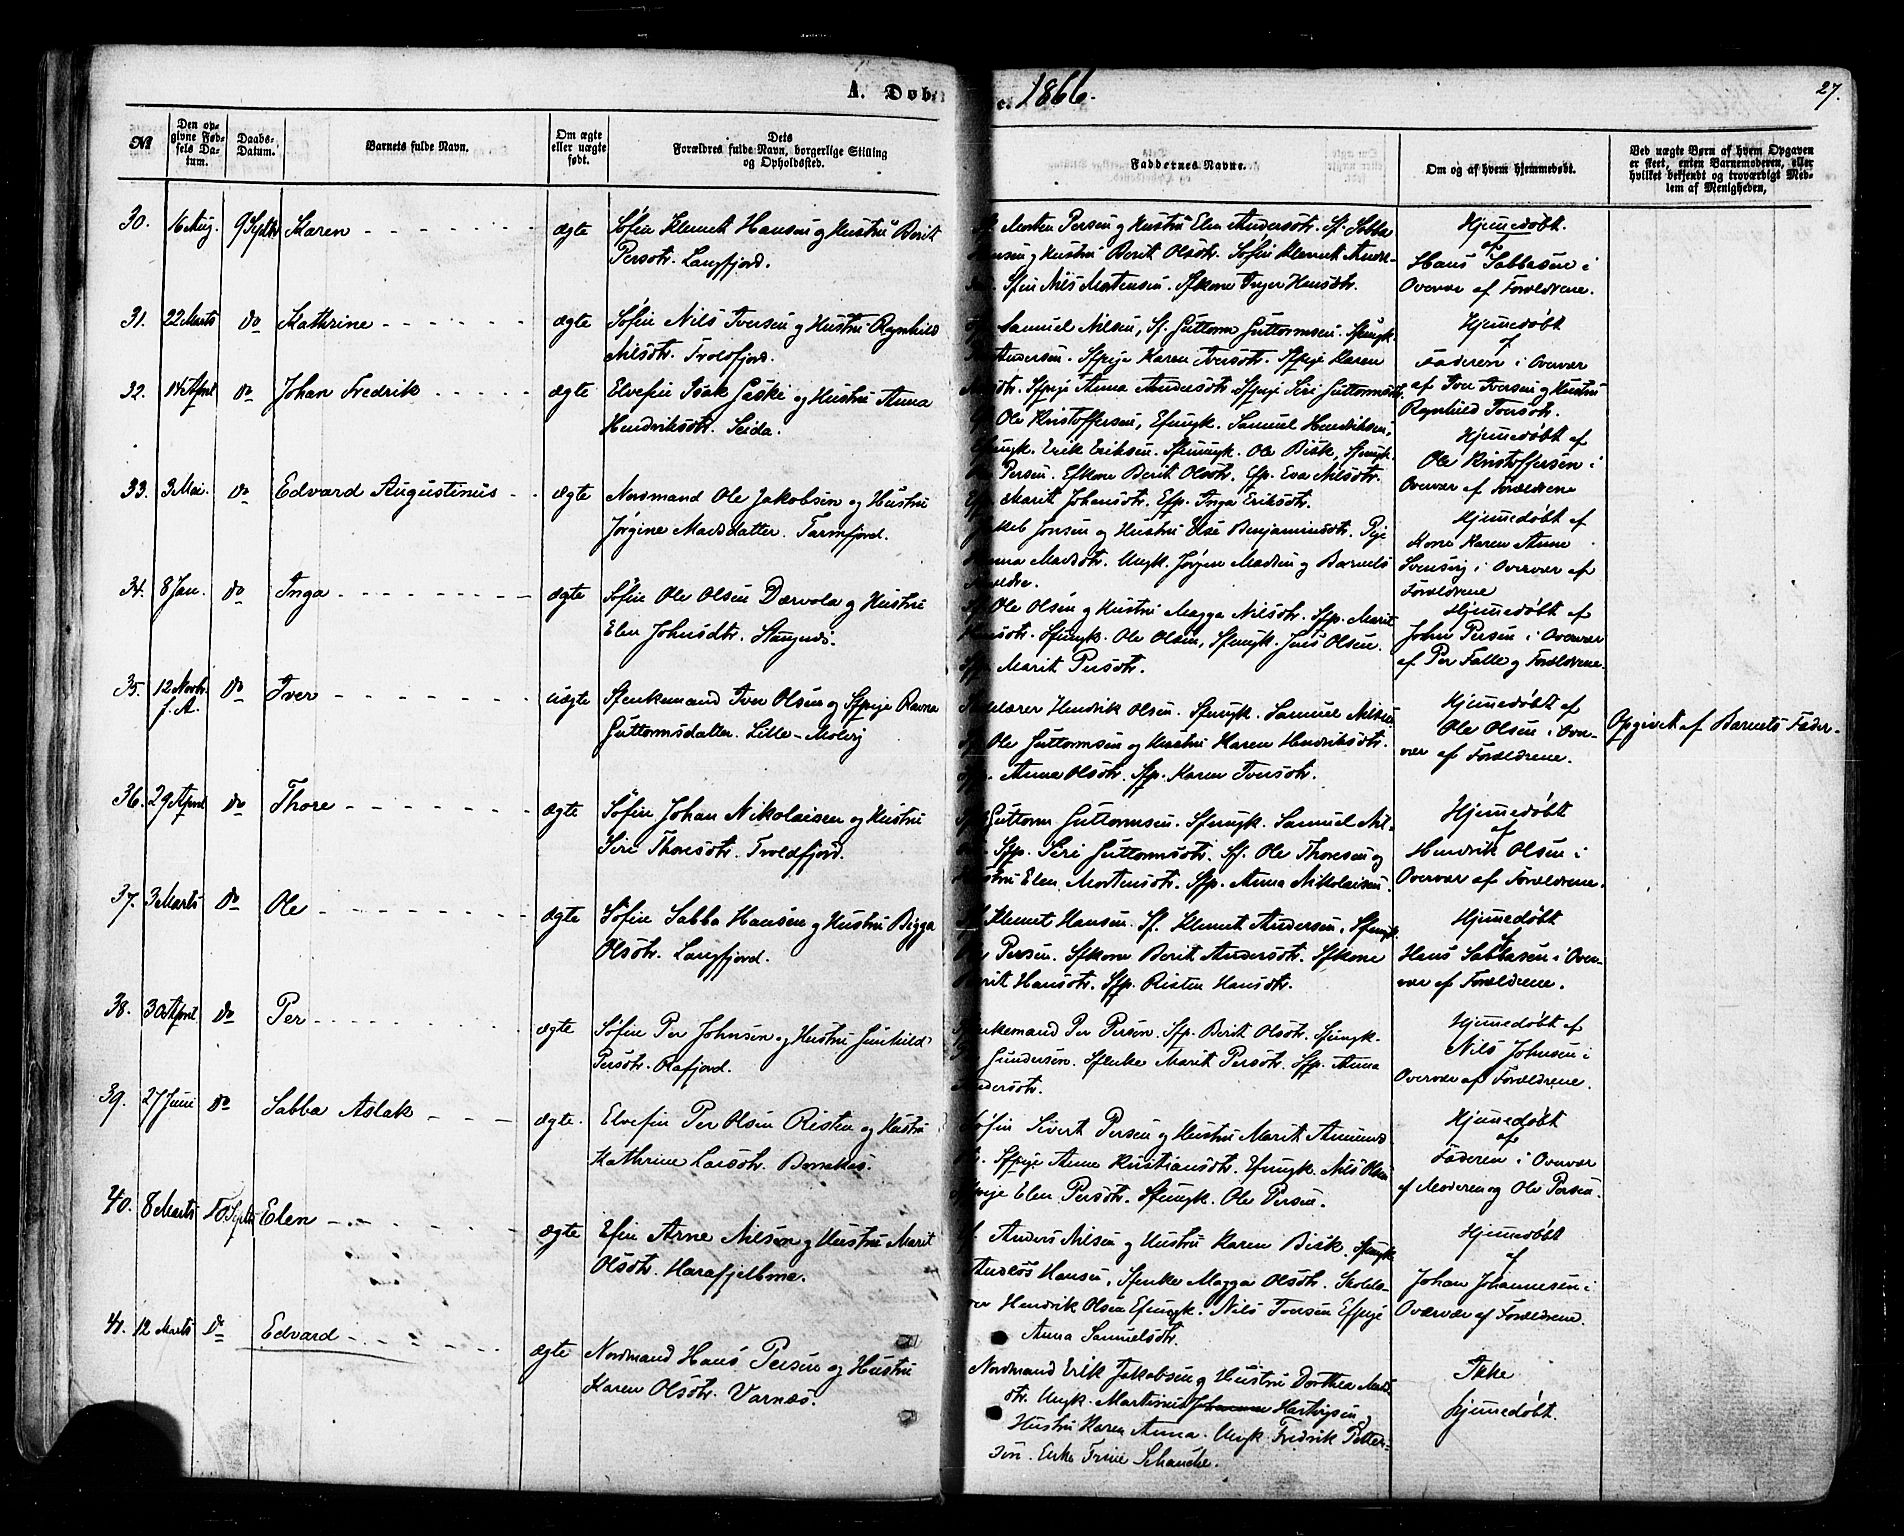 A. Døb
e. 1866.
27.
No
Den op-
givne Fød-
sels Da-
tum.
Daabs-
Datum.
Barnets fulde Navn.
Om ægte
eller uægte
født.
Dets
Forældres fulde Navn, borgerlige Stilling
og Opholdssted.
Faddernes Navne.
Om og af hvem hjemmedøbt.
Ved uægte Børn af hvem Opgaven
er skeet, enten Barnemoderen, eller
hvilket bekjendt og troværdigt Med-
lem af Menigheden.
30. 16 Aug. 9 Septbr Karen ægte
Søfin Klemet Hansen og Hustru Berit
Persdtr. Langfjord.
Morten Persen og Hustru Elen Andersdtr. Sf. Sabba
Hansen og Hustru Berit Olsdtr. Søfin Klemet Ander-
Sfin Nils Mortensen. Sfkone Inger Hansdtr.
Hjemmedøbt
af
Hans Sabbasen i
Overvær af Forældrene.
31. 22 Marts do Kathrine ægte
Søfin Nils Iversen og Hustru Ragnhild
Nilsdtr. Troldfjord.
Samuel Nilsen, Sf. Guttorm Guttormsen. Sfungk.
Andersen. Sfpige Karen Iversdtr. Sfpige Karen
Sfpige Anna Andersdtr. Sfpige Siri Guttormsdtr.
Hjemmedøbt
af
Faderen i Overvær
af Iver Iversen og Hustru
Ragnhild Iversdtr.
32. 14 April do Johan Fredrik ægte
Elvefin Isak Gaski og Hustru Anna
Hendriksdtr. Seida.
Ole Kristoffersen, Efungk. Samuel Hendriksen,
Efungk. Erik Eriksen. Sfungk. Ole Bisk, Sfungk.
Persen. Efkone Berit Olsdtr. Efp. Eva Nilsdtr.
Efp. Marit Johansdtr. Efp. Inga Eriksdtr.
Hjemmedøbt af
Ole Kristoffersen i
Overvær af Forældrene
33. 3 Mai. do Edvard Augustinus ægte
Nordmand Ole Jakobsen og Hustru
Jørgine Madsdatter. Tarmfjord.
Jakob Jonsen og Hustru Else Benjaminsdtr. Pige
Anna Madsdtr. Ungk. Jørgen Madsen og Barnets
Forældre.
Hjemmedøbt af
Kone Karen Anne
i Overvær af
Forældrene
34. 8 Jan. do Inga ægte
Søfin Ole Olsen Dærvola og Hustru
Elen Johnsdtr. Stangnæs.
Sf. Ole Olsen og Hustru Magga Nilsdtr. Sfp. Marit
Hansdtr. Sfungk. Ole Olsen, Sfungk. Jens Olsen.
Sfp. Marit Persdtr.
Hjemmedøbt af
John Persen i Overvær
af Per Falle og Forældrene.
35. 12 Novbr. f. A. do Iver uægte
Sfenkemand Iver Olsen og Sfpige Ravna
Guttormsdatter. Lille-Molvig
Hendrik Olsen. Sfungk. Samuel Nilsen
Sf. Ole Guttormsen og Hustru Karen Hendriksdtr.
Sfp. Anna Olsdtr. Sfp. Karen Iversdtr.
Hjemmedøbt af
Ole Olsen i Over-
vær af Forældrene.
Opgivet af Barnets Fader.
36. 29 April do Thore ægte
Søfin Johan Nikolaisen og Hustru
Siri Thoresdtr. Troldfjord.
Guttorm Guttormsen. Sfungk. Samuel Nil-
Sfp. Siri Guttormsdtr. Sf. Ole Thoresen og
Hustru Elen Mortensdtr. Sfp. Anna Nikolaisen.
Hjemmedøbt
af
Hendrik Olsen i
Overvær af Forældrene.
37. 3 Marts do Ole ægte
Søfin Sabba Hansen og Hustru Bigga
Olsdtr. Langfjord.
Klemet Hansen. Sf. Klemet Andersen. Sfungk.
Persen. Sfkone Berit Andersdtr. Sfkone
Berit Hansdtr. Sfp. Risten Hansdtr.
Hjemmedøbt
af
Hans Sabbasen i Over-
vær af Forældrene.
38. 30 April do Per ægte
Søfin Per Johnsen og Hustru Gunhild
Persdtr. Rafjord.
Sfenkemand Per Persen. Sfp. Berit Olsdtr. Sfungk.
Gundersen. Sfenke Marit Persdtr. Sfp. Anna
Andersdtr.
Hjemmedøbt af
Nils Johnsen i
Overvær af Forældrene.
39. 27 Juni do Sabba Aslak ægte.
Elvefin Per Olsen Risten og Hustru
Kathrine Larsdtr. Bonakas.
Søfin Sivert Persen og Hustru Marit Amunds
Sfpige Anne Kristiansdtr. Efungk. Nils Olsen
Sfpige Elen Persdtr. Sfungk. Ole Persen.
Hjemmedøbt
af
Faderen i Overvær
af Moderen og Ole Persen.
40. 8 Marts 10 Septbr Elen ægte
Efin Arne Nilsen og Hustru Marit
Olsdtr. Harafjelbma.
Anders Nilsen og Hustru Karen Bisk. Sfungk
Andreas Hansen, Sfenke Magga Olsdtr. Skolelæ-
rer Hendrik Olsen Efungk. Nils Iversen Efpige
Anna Samuelsdtr.
Hjemmedøbt
af
Johan Johannesen i
Overvær af Forældrene.
41. 12 Marts do Edvard ægte
Nordmand Hans Persen og Hustru
Karen Olsdtr. Varnæs.
Nordmand Erik Jakobsen og Hustru Dorthea Mads
dtr. Ungk. Martinus Hartvigsen
Hustru Karen Anna. Ungk. Fredrik Petter-
sen. Enke Trine Schanche.
Ikke
hjemmedøbt.